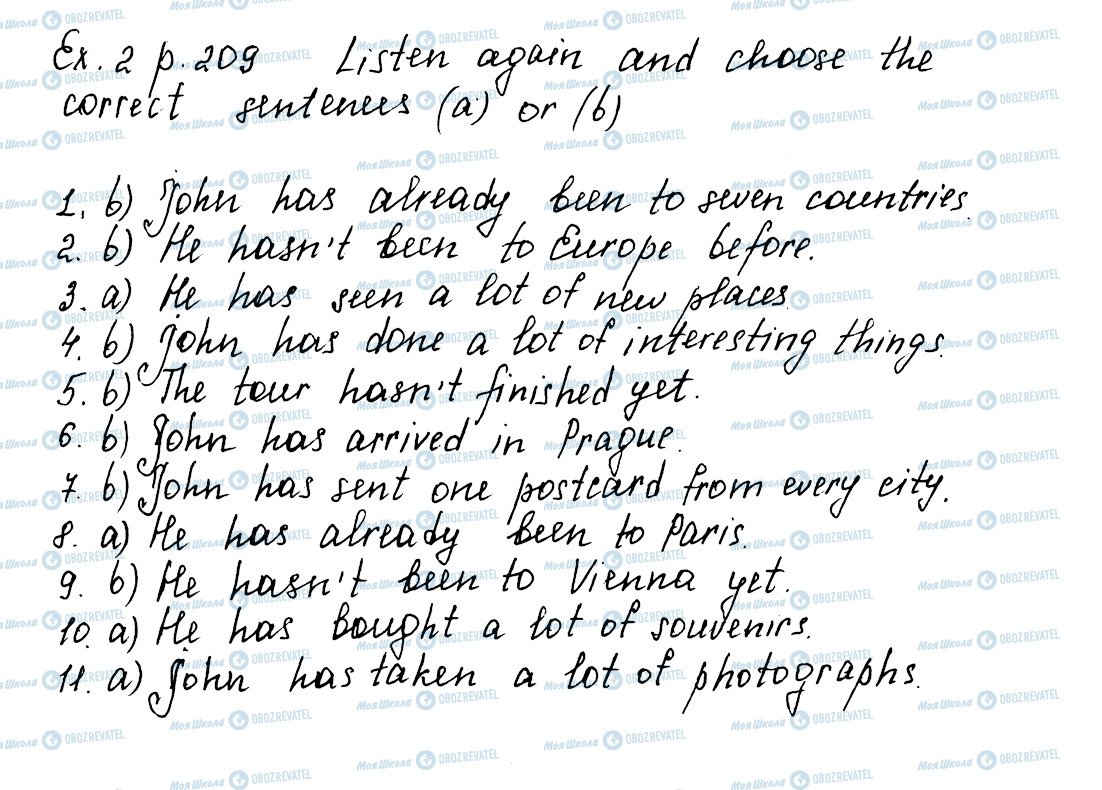 Ex. 2 p. 209 Listen again and choose the
correct sentences (a) or (b)
1. b) John has already been to seven countries.
2. b) He hasn't been to Europe before.
3. a) He has seen a lot of new places.
4. b) John has done a lot of interesting things.
5. b) The tour hasn't finished yet.
6. b) John has arrived in Prague.
7. b) John has sent one postcard from every city.
8. a) He has already been to Paris.
9. b) He hasn't been to Vienna yet.
10. a) He has bought a lot of souvenirs.
11. a) John has taken a lot of photographs.